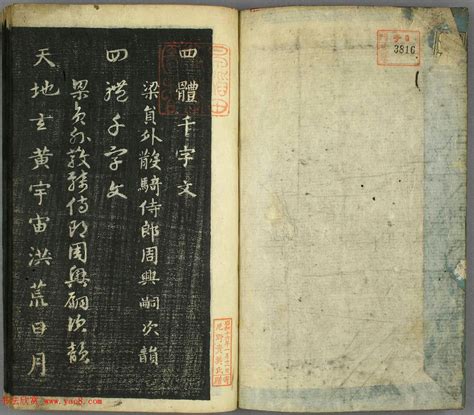 四體千字文
梁員外散騎侍郎周興嗣次韻
四體千字文
梁員外散騎侍郎周興嗣次韻
天地玄黃宇宙洪荒日月
3816
书法欣赏
www.yac8.com